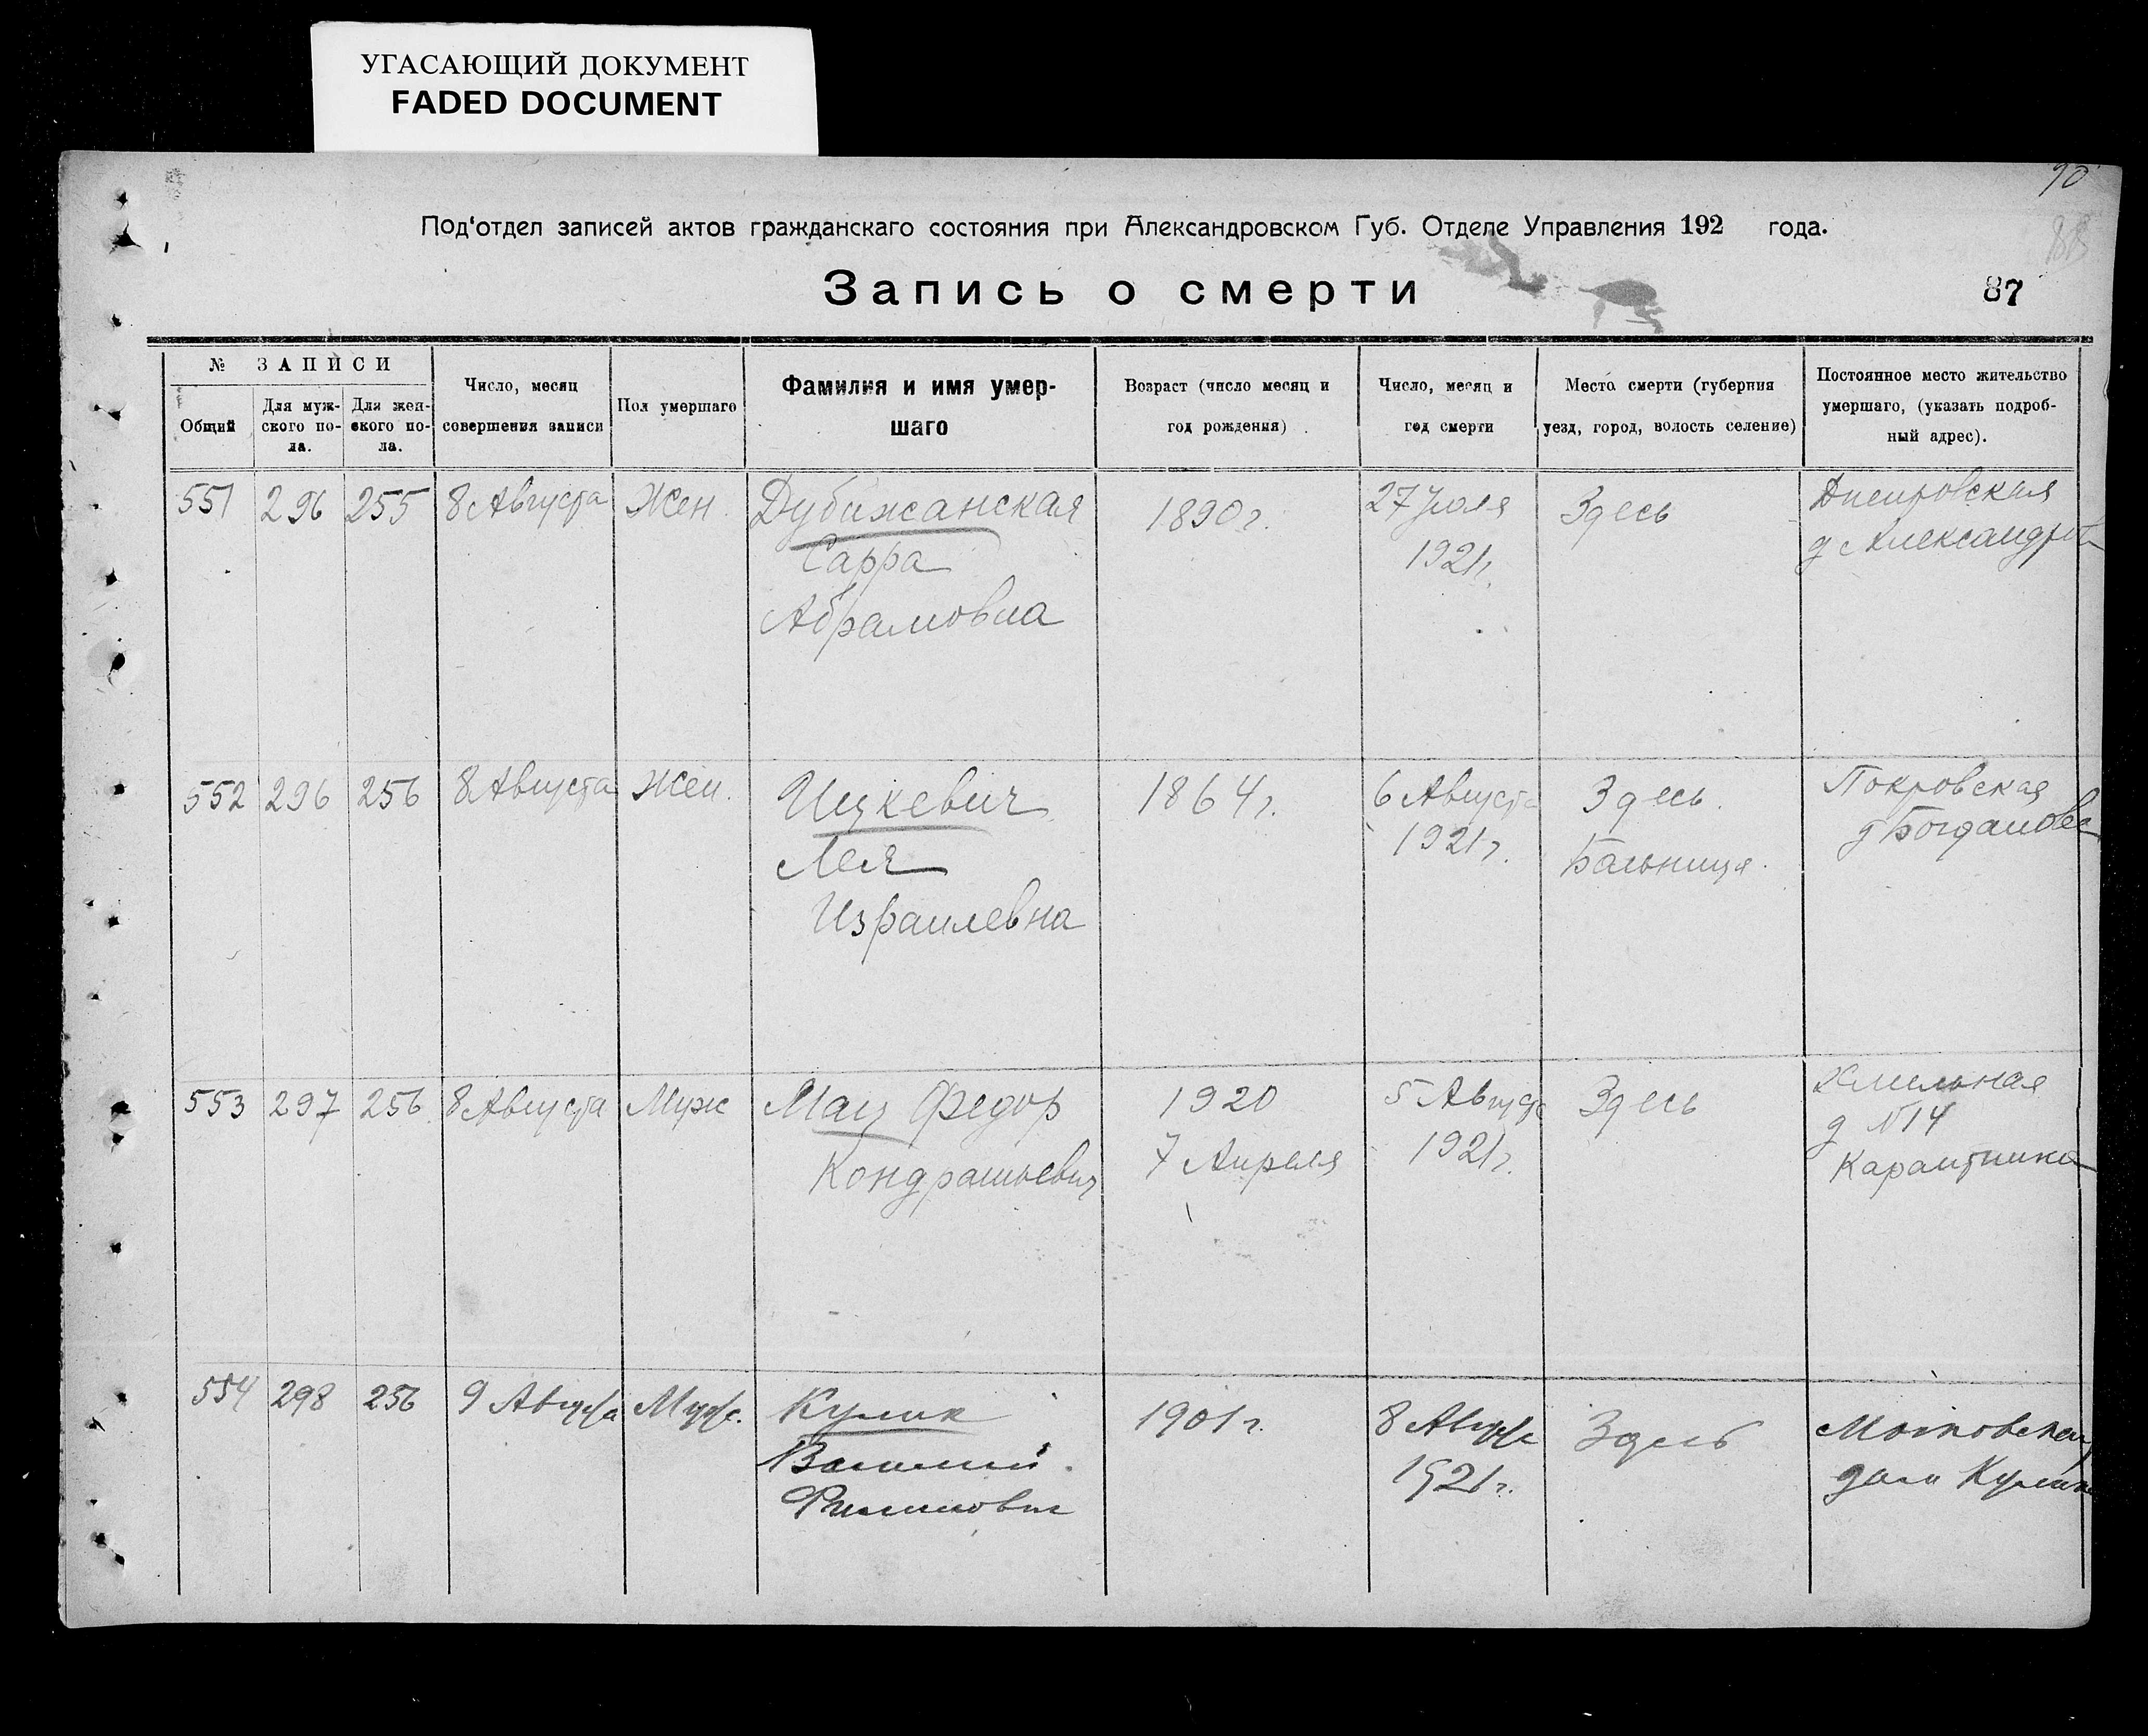 УГАСАЮЩИЙ ДОКУМЕНТ
FADED DOCUMENT
90
Под'отдел записей актов гражданскаго состояния при Александровском Губ. Отделе Управления 192 года.
88
Запись о смерти
87
№ ЗАПИСИ
Общий
Для муж-
ского по-
ла.
Для жен-
ского по-
ла.
Число, месяц
совершения записи
Пол умершаго
Фамилия и имя умер-
шаго
Возраст (число месяц и
год рождения)
Число, месяц и
год смерти
Место смерти (губерния
уезд, город, волость селение)
Постоянное место жительство
умершаго, (указать подроб-
ный адрес).
551 296 255 8 Августа Жен. Дубижанская 1890 г. 27 Июля Здесь Днепровская
Сарра 1921 г. д Александров
Абрамовна
552 296 256 8 Августа Жен. Ицкевич 1864 г. 6 Августа Здесь. Покровская
Лея 1921 г. Больница. д Богданова
Израилевна
553 297 256 8 Августа Муж Мац Федор 1920 5 Августа Здесь
Кондратьевич 7 Апреля 1921 г. д №14
Карантинка
554 298 256 9 Августа Муж. Кулик 1901 г. 8 Августа Здесь Московская
Василий 1921 г. дом Кулика
Филиппович